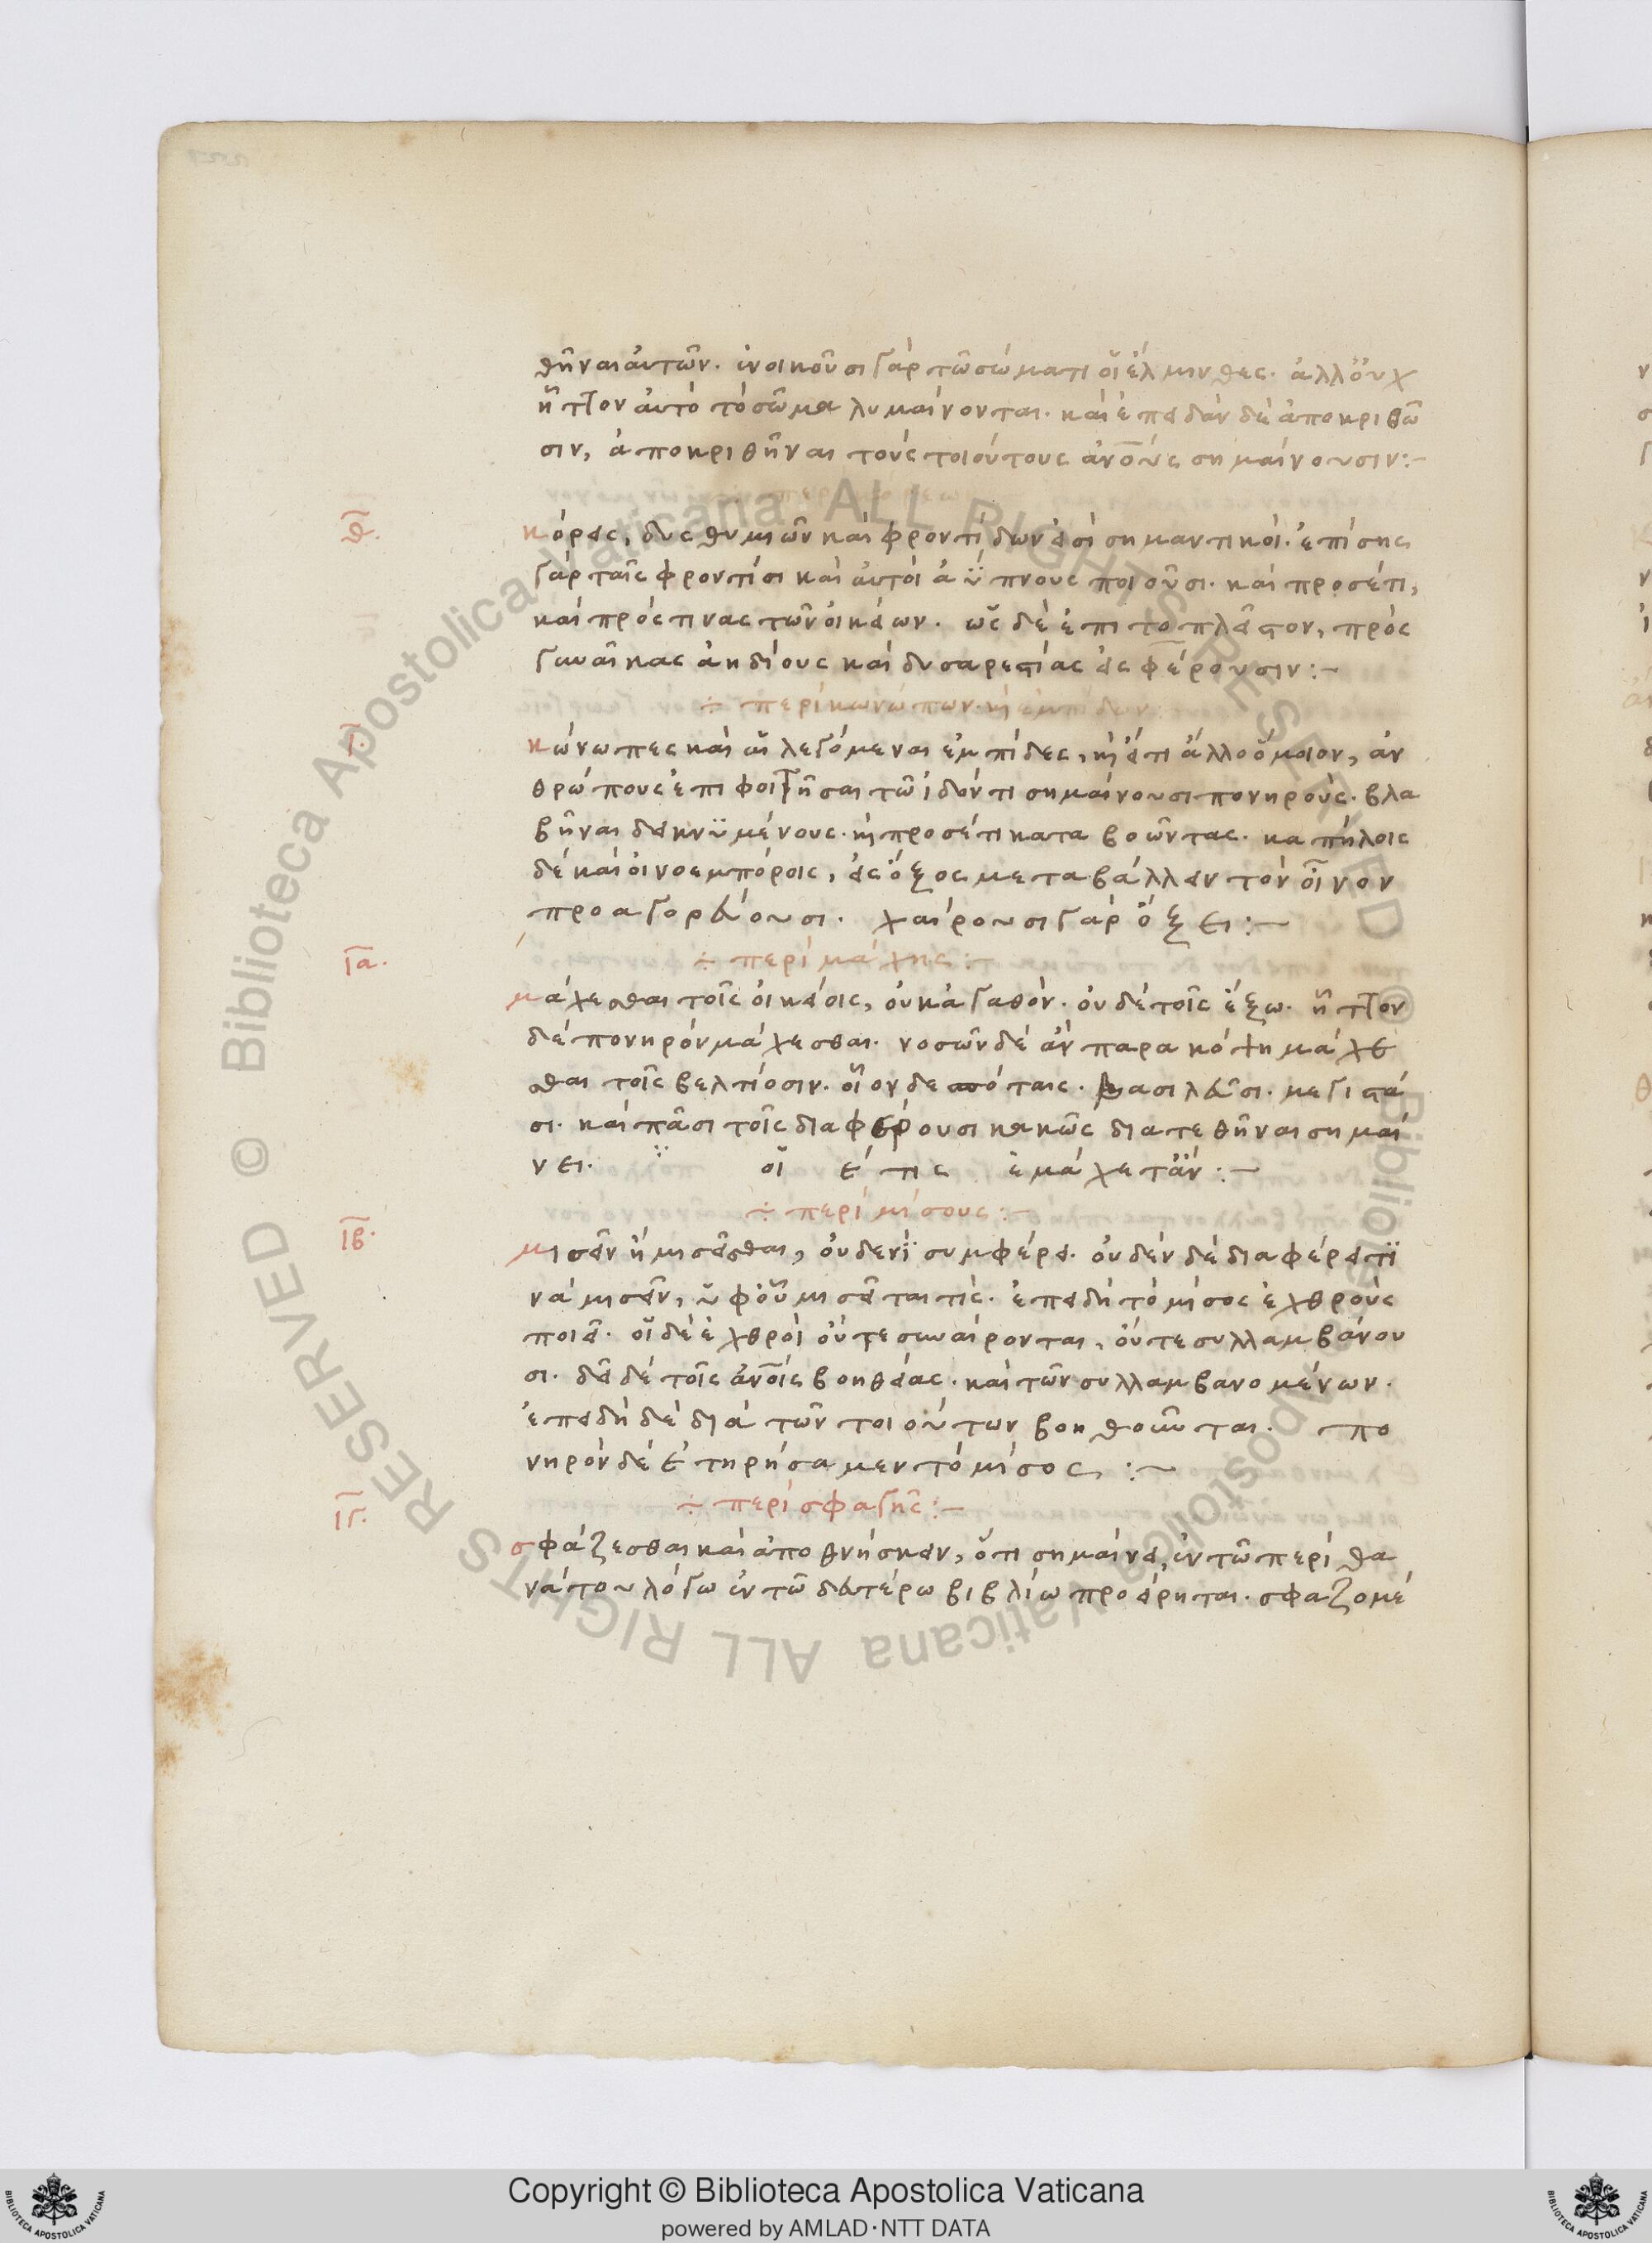 θῆναι αὐτῶν. ἐνοικοῦσι γὰρ τῶ σώματι οἱ ἕλμινθες. ἀλλ' οὐχ
ἧττον αὐτὸ τὸ σῶμα λυμαίνονται. καὶ ἐπειδὰν δὲ ἀποκριθῶ
σιν, ἀποκριθῆναι τοὺς τοιούτους ἀνους σημαίνουσιν:-
θ.
κόρεις, δυσθυμιῶν καὶ φροντίδων εἰσὶ σημαντικοί. ἐπίσης
γὰρ ταῖς φροντίσι καὶ αὐτοὶ ἀΰπνους ποιοῦσι. καὶ προσέτι,
καὶ πρός τινας τῶν οἰκείων. ὡς δὲ ἐπιτοπλεῖστον, πρὸς
γυναῖκας ἀηδίους καὶ δυσαρεστίας εἰσφέρουσιν:-
÷ περὶ κωνώπων. ἢ ἐμπίδων
ι.
κώνωπες καὶ αἱ λεγόμεναι ἐμπίδες, ἢ εἴ τι ἄλλο ὅμοιον, ἀν
θρώπους ἐπιφοιτῆσαι τῶ ἰδόντι σημαίνουσι πονηρούς. βλα
βῆναι δεικνϋμένους. ἢ προσέτι καταβοῶντας. καπήλοις
δὲ καὶ οἰνοεμπόροις, εἰς ὄξος μεταβάλλειν τὸν οἶνον
προαγορεύουσι. χαίρουσι γὰρ ὄξει:-
÷ περὶ μάχης:
ια.
μάχεσθαι τοῖς οἰκείοις, οὐκ ἀγαθόν. οὐδὲ τοῖς ἔξω. ἧττον
δὲ πονηρὸν μάχεσθαι. νοσῶν δὲ ἂν παρακόψη μάχε
σθαι τοῖς βελτίοσιν. οἷον δεσπόταις. βασιλεῦσι. μεγιστά
σι. καὶ πᾶσι τοῖς διαφέρουσι κακῶς διατεθῆναι σημαί
νει. ϋ οἱ έ τις ἐμάχετ' ἄν:-
÷ περὶ μίσους:-
ιβ.
μισεῖν ἢ μισεῖσθαι, οὐδενῒ συμφέρει. οὐδὲν δὲ διαφέρει τῒ
νὰ μισεῖν, ὑφ' οὗ μισεῖται τίς. ἐπειδὴ τὸ μίσος ἐχθροὺς
ποιεῖ. οἱ δὲ ἐχθροὶ οὔτε συναίρονται, οὔτε συλλαμβάνου
σι. δεῖ δὲ τοῖς ἀνοις βοηθείας. καὶ τῶν συλλαμβανομένων.
ἐπειδὴ δὲ διὰ τῶν τοιούτων βοηθοῦνται. πο
νηρὸν δὲ ἐτηρήσαμεν τὸ μίσος:-
÷ περὶ σφαγῆς:-
ιγ.
σφάζεσθαι καὶ ἀποθνήσκειν, ὅτι σημαίνει, ἐν τῶ περὶ θα
νάτου λόγω ἐν τῶ δευτέρω βιβλίω προείρηται. σφαζομέ
Copyright © Biblioteca Apostolica Vaticana
powered by AMLAD·NTT DATA
© Biblioteca Apostolica Vaticana ALL RIGHTS RESERVED
© Biblioteca Apostolica Vaticana ALL RIGHTS RESERVED
BIBLIOTECA APOSTOLICA VATICANA
BIBLIOTECA APOSTOLICA VATICANA